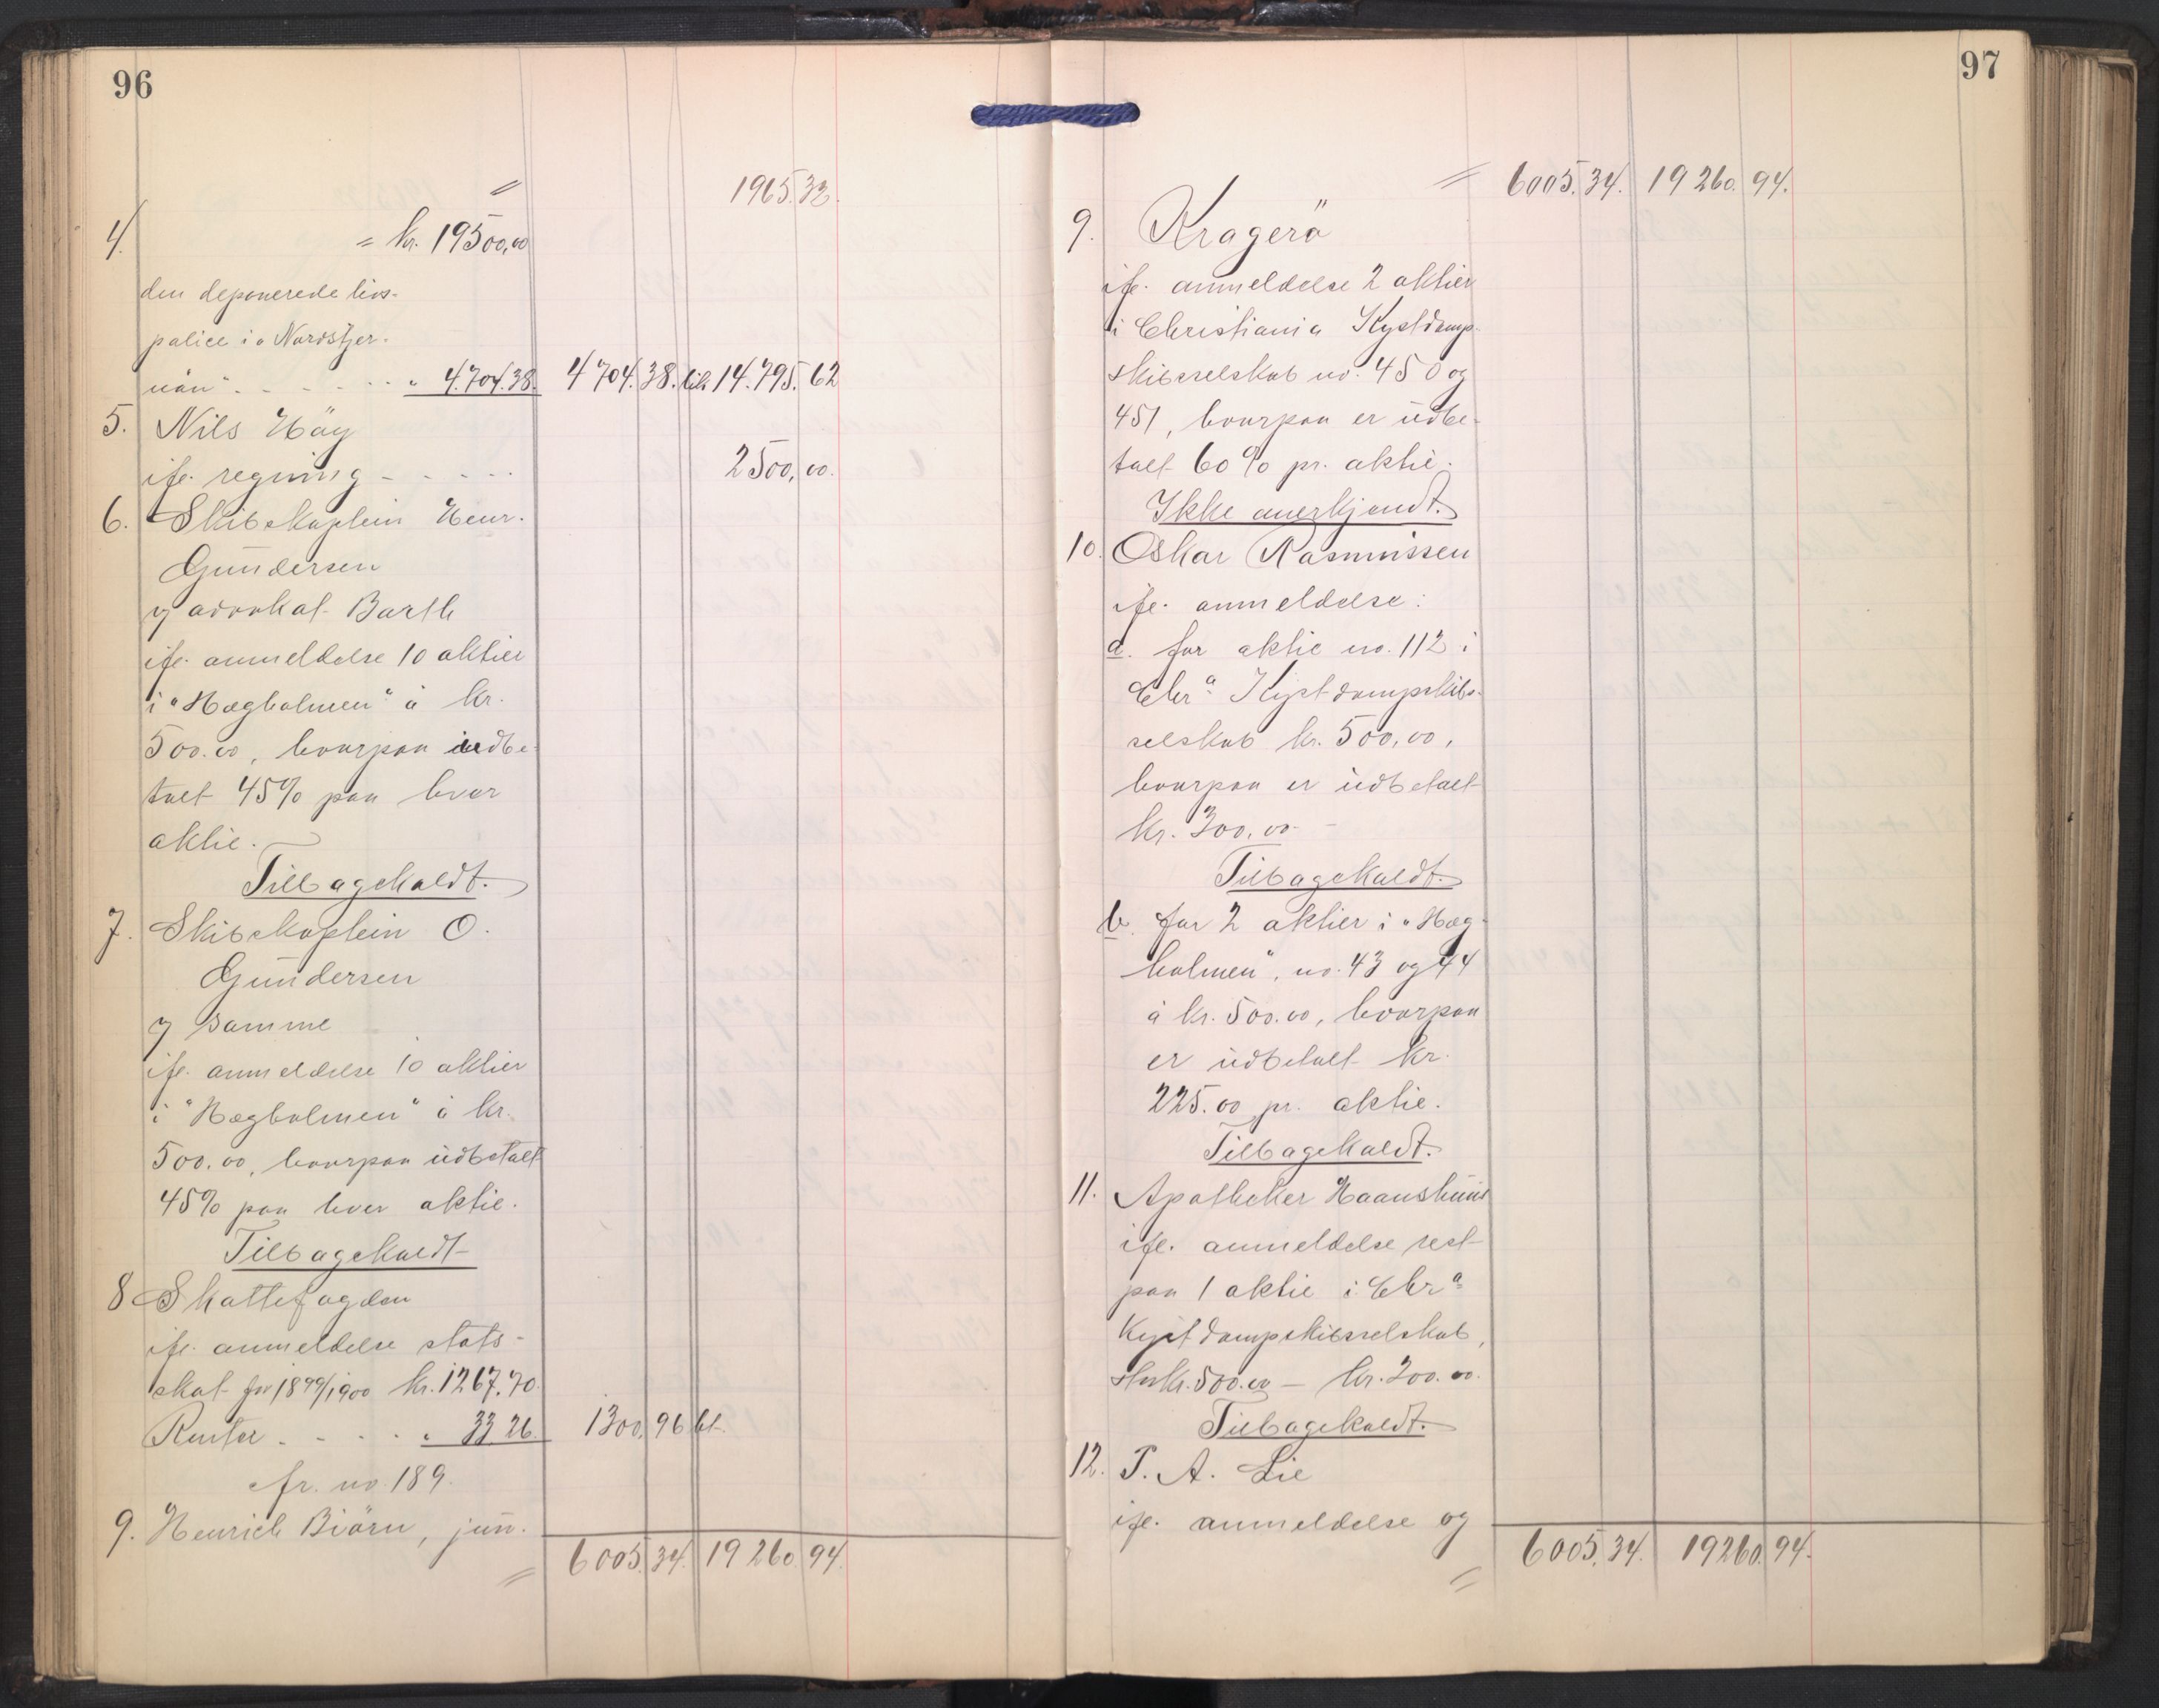 96
= 1965.32.
4. = kr. 19500,00
den deponerede livs-
police i „Nordstjer-
nen“ - - - - - „ 4.704.38. 4704.38. til. 14.795.62
5. Nils Höy
ifø. regning - - - - - 2500,00.
6. Skibskaptein Henr.
Gundersen
v/ advokat Barth
ifø. anmeldelse 10 aktier
i „Hægholmen“ à kr.
500.00, hvorpaa indbe-
talt 45% paa hver
aktie.
Tilbagekaldt.
7. Skibskaptein O.
Gundersen
v/ samme
ifø. anmeldelse 10 aktier
i „Hægholmen“ à kr.
500.00, hvorpaa udbetalt
45% paa hver aktie.
Tilbagekaldt
8 Skattefogden
ifø. anmeldelse stats-
skat for 1899/1900 kr. 1267.70.
Renter - - - - „ 33.26. 1300,96 bt.
cfr. no. 189.
9. Henrich Biörn, jun.
6005.34. 19260.94.
=
97
= 6005.34. 19260.94.
9. Kragerö
ifø. anmeldelse 2 aktier
i Christiania Kystdamp-
skibsselskab no. 450 og
451, hvorpaa er udbe-
talt 60% pr. aktie.
Ikke anerkjendt.
10. Oskar Rasmussen
ifø. anmeldelse:
a. for aktie no. 112 i
Chra Kystdampskibs-
selskab kr. 500,00,
hvorpaa er udbetalt
kr. 300,00.
Tilbagekaldt.
b. for 2 aktier i „Hæg-
holmen“, no. 43 og 44
à kr. 500.00, hvorpaa
er udbetalt kr.
225.00 pr. aktie.
Tilbagekaldt.
11. Apotheker Haanshuus
ifø. anmeldelse rest
paa 1 aktie i Chra
Kystdampskibsselskab,
kr. 500.00 - kr. 200.00.
Tilbagekaldt.
12. T. A. Lie
ifø. anmeldelse og
6005.34. 19260.94.
=